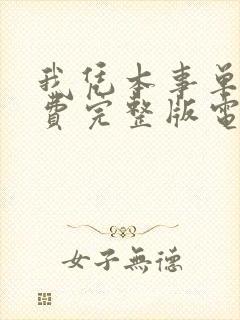 我凭本事单
費完整版電
女子無德